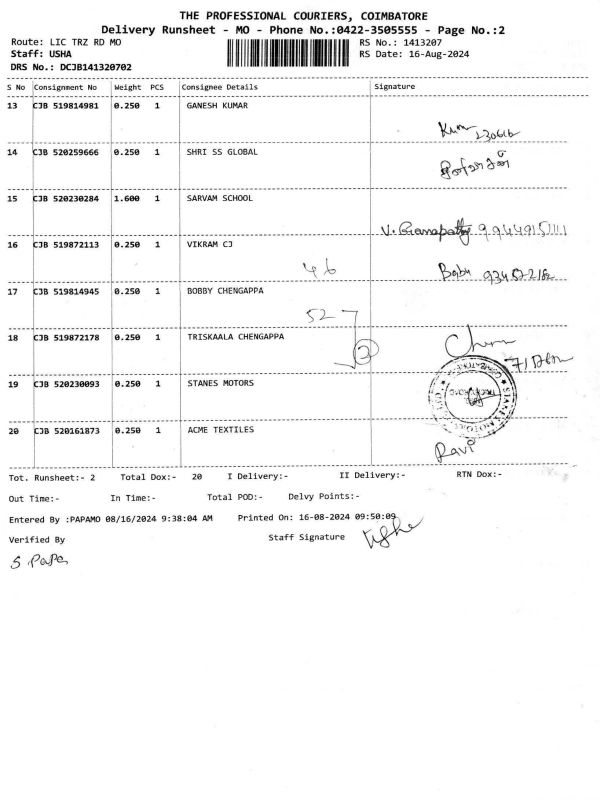 THE PROFESSIONAL COURIERS, COIMBATORE
Delivery Runsheet - MO - Phone No.:0422-3505555 - Page No.:2
Route: LIC TRZ RD MO RS No.: 1413207
Staff: USHA RS Date: 16-Aug-2024
DRS No.: DCJB141320702
S No Consignment No Weight PCS Consignee Details Signature
13 CJB 519814981 0.250 1 GANESH KUMAR
14 CJB 520259666 0.250 1 SHRI SS GLOBAL
15 CJB 520230284 1.600 1 SARVAM SCHOOL
V. Ganapathy 9944915111
16 CJB 519872113 0.250 1 VIKRAM CJ
46 Babu
17 CJB 519814945 0.250 1 BOBBY CHENGAPPA
52
18 CJB 519872178 0.250 1 TRISKAALA CHENGAPPA
2
19 CJB 520230093 0.250 1 STANES MOTORS
STANES MOTORS
20 CJB 520161873 0.250 1 ACME TEXTILES
Ravi
Tot. Runsheet:- 2 Total Dox:- 20 I Delivery:- II Delivery:- RTN Dox:-
Out Time:- In Time:- Total POD:- Delvy Points:-
Entered By :PAPAMO 08/16/2024 9:38:04 AM Printed On: 16-08-2024 09:50:09
Verified By Staff Signature Usha
S Papa